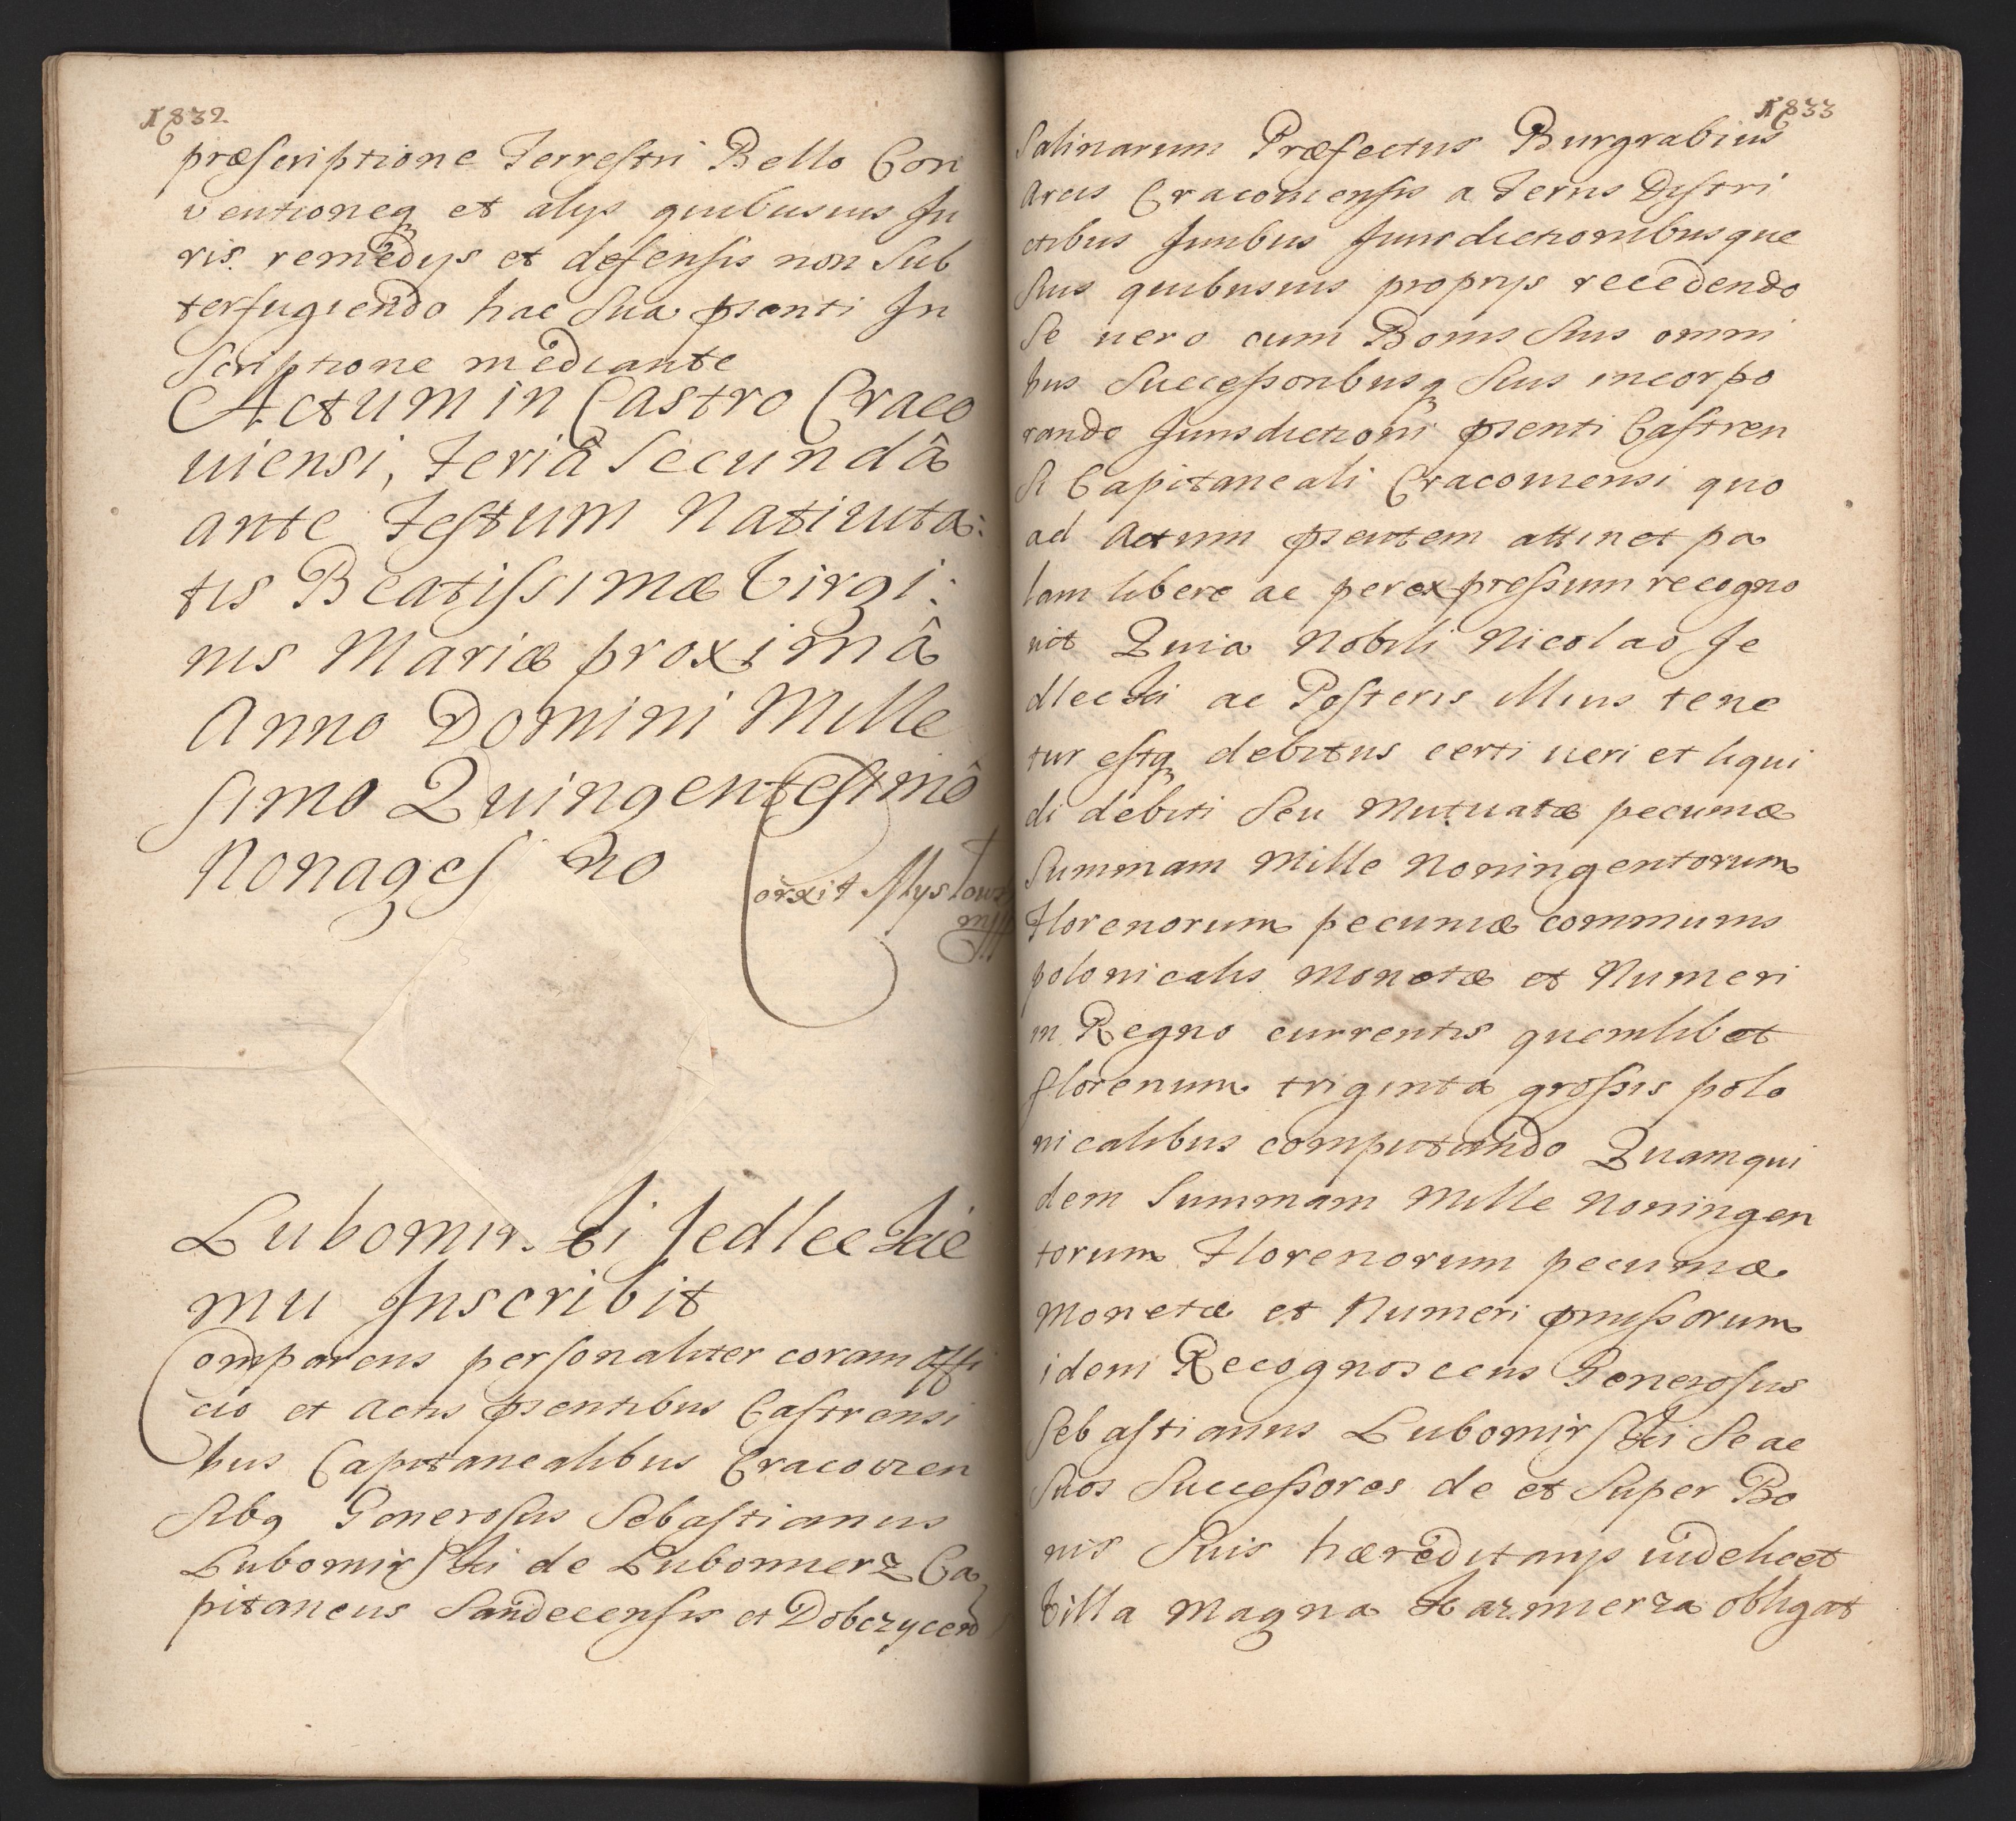 1832
præscriptione Terrestri Bello Con
ventioneq et alys quibusuis Ju
ris remedys et defensis non sub
terfugiendo hac sua psenti In
scriptione mediante
Actum in Castro Craco
uiensi, Feriâ Secundâ
ante Festum Natiuita:
tis Beatissimæ Virgi:
nis Mariæ proximâ
Anno Domini Mille
simo Quingentesimô
Nonages no
Corrxit
Lubomir. ki Jedleckie
mu Inscribit
Comparens personaliter coram offi
cio et Actis psentibus Castrensi
bus Capitanealibus Cracovien
sibq Generosus Sebastianus
Lubomirski de Lubomierz Ca
pitaneus Sandecensis et Dobczycen
1833
Salinarum Præfectus Burgrabius
Arcis Cracouiensis a Terris Distri
ctibus Juribus Jurisdictionibusque
suis quibusuis proprys recedendo
se uero cum Bonis suis omni
bus Successoribusq suis incorpo
rando Jurisdictioni psenti Castren
si Capitaneali Cracouiensi quo
ad Actum psentem attinet pa
lam libere ac per expressum recogno
uit Quia Nobili Nicolao Je
dlecki ac Posteris illius tene
tur estq debitus certi ueri et liqui
di debiti seu Mutuatæ pecuniæ
Summam Mille Noningentorum
Florenorum pecuniæ communis
polonicalis Monetæ et Numeri
in Regno currentis quemlibet
florenum triginta grossis polo
nicalibus computando Quamqui
dem Summam Mille Noningen
torum Florenorum pecuniæ
Monetæ et Numeri pmissorum
idem Recognoscens Generosus
Sebastianus Lubomirski se ac
suos Successores de et super Bo
nis suis hæreditarys uidelicet
Villa Magna Kazmierza obligat